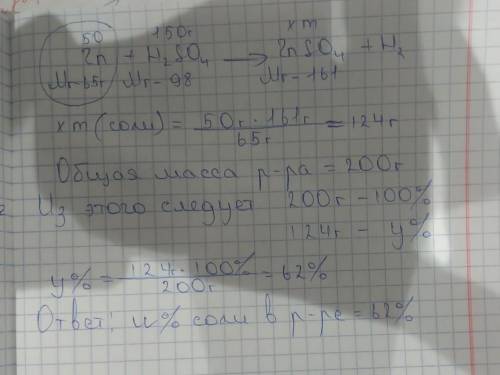 50 150г xm
Zn + H₂SO₄ → ZnSO₄ + H₂
Mr-65г Mr-98 Mr-161
xm (соли) = 50г · 161г / 65г = 124г
Общая масса р-ра = 200г
Из этого следует 200г - 100%
124г - y%
y% = 124г · 100% / 200г = 62%
Ответ: w% соли в р-ре = 62%